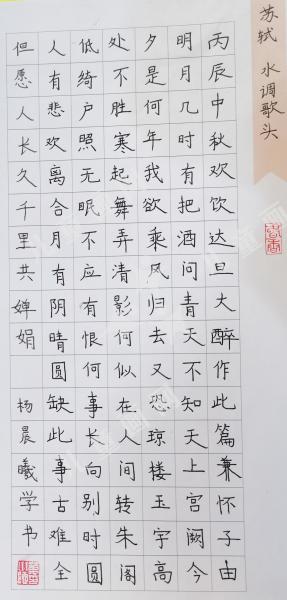 苏轼 水调歌头
丙辰中秋欢饮达旦大醉作此篇兼怀子由
明月几时有把酒问青天不知天上宫阙今
夕是何年我欲乘风归去又恐琼楼玉宇高
处不胜寒起舞弄清影何似在人间转朱阁
低绮户照无眠不应有恨何事长向别时圆
人有悲欢离合月有阴晴圆缺此事古难全
但愿人长久千里共婵娟 杨晨曦学书